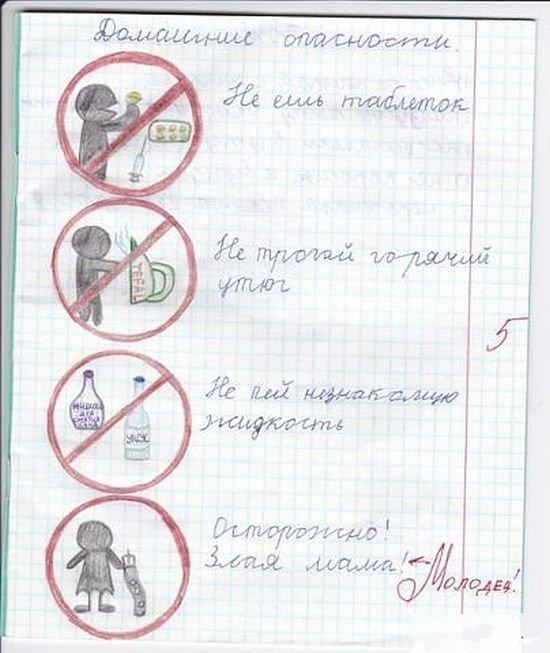 Домашние опасности.
Не ешь таблеток
Не трогай горячий
утюг
TEFAL
5
Не пей незнакомую
жидкость
жидкость
для
снятия
лака
уксус
Осторожно!
Злая мама!
Молодец!